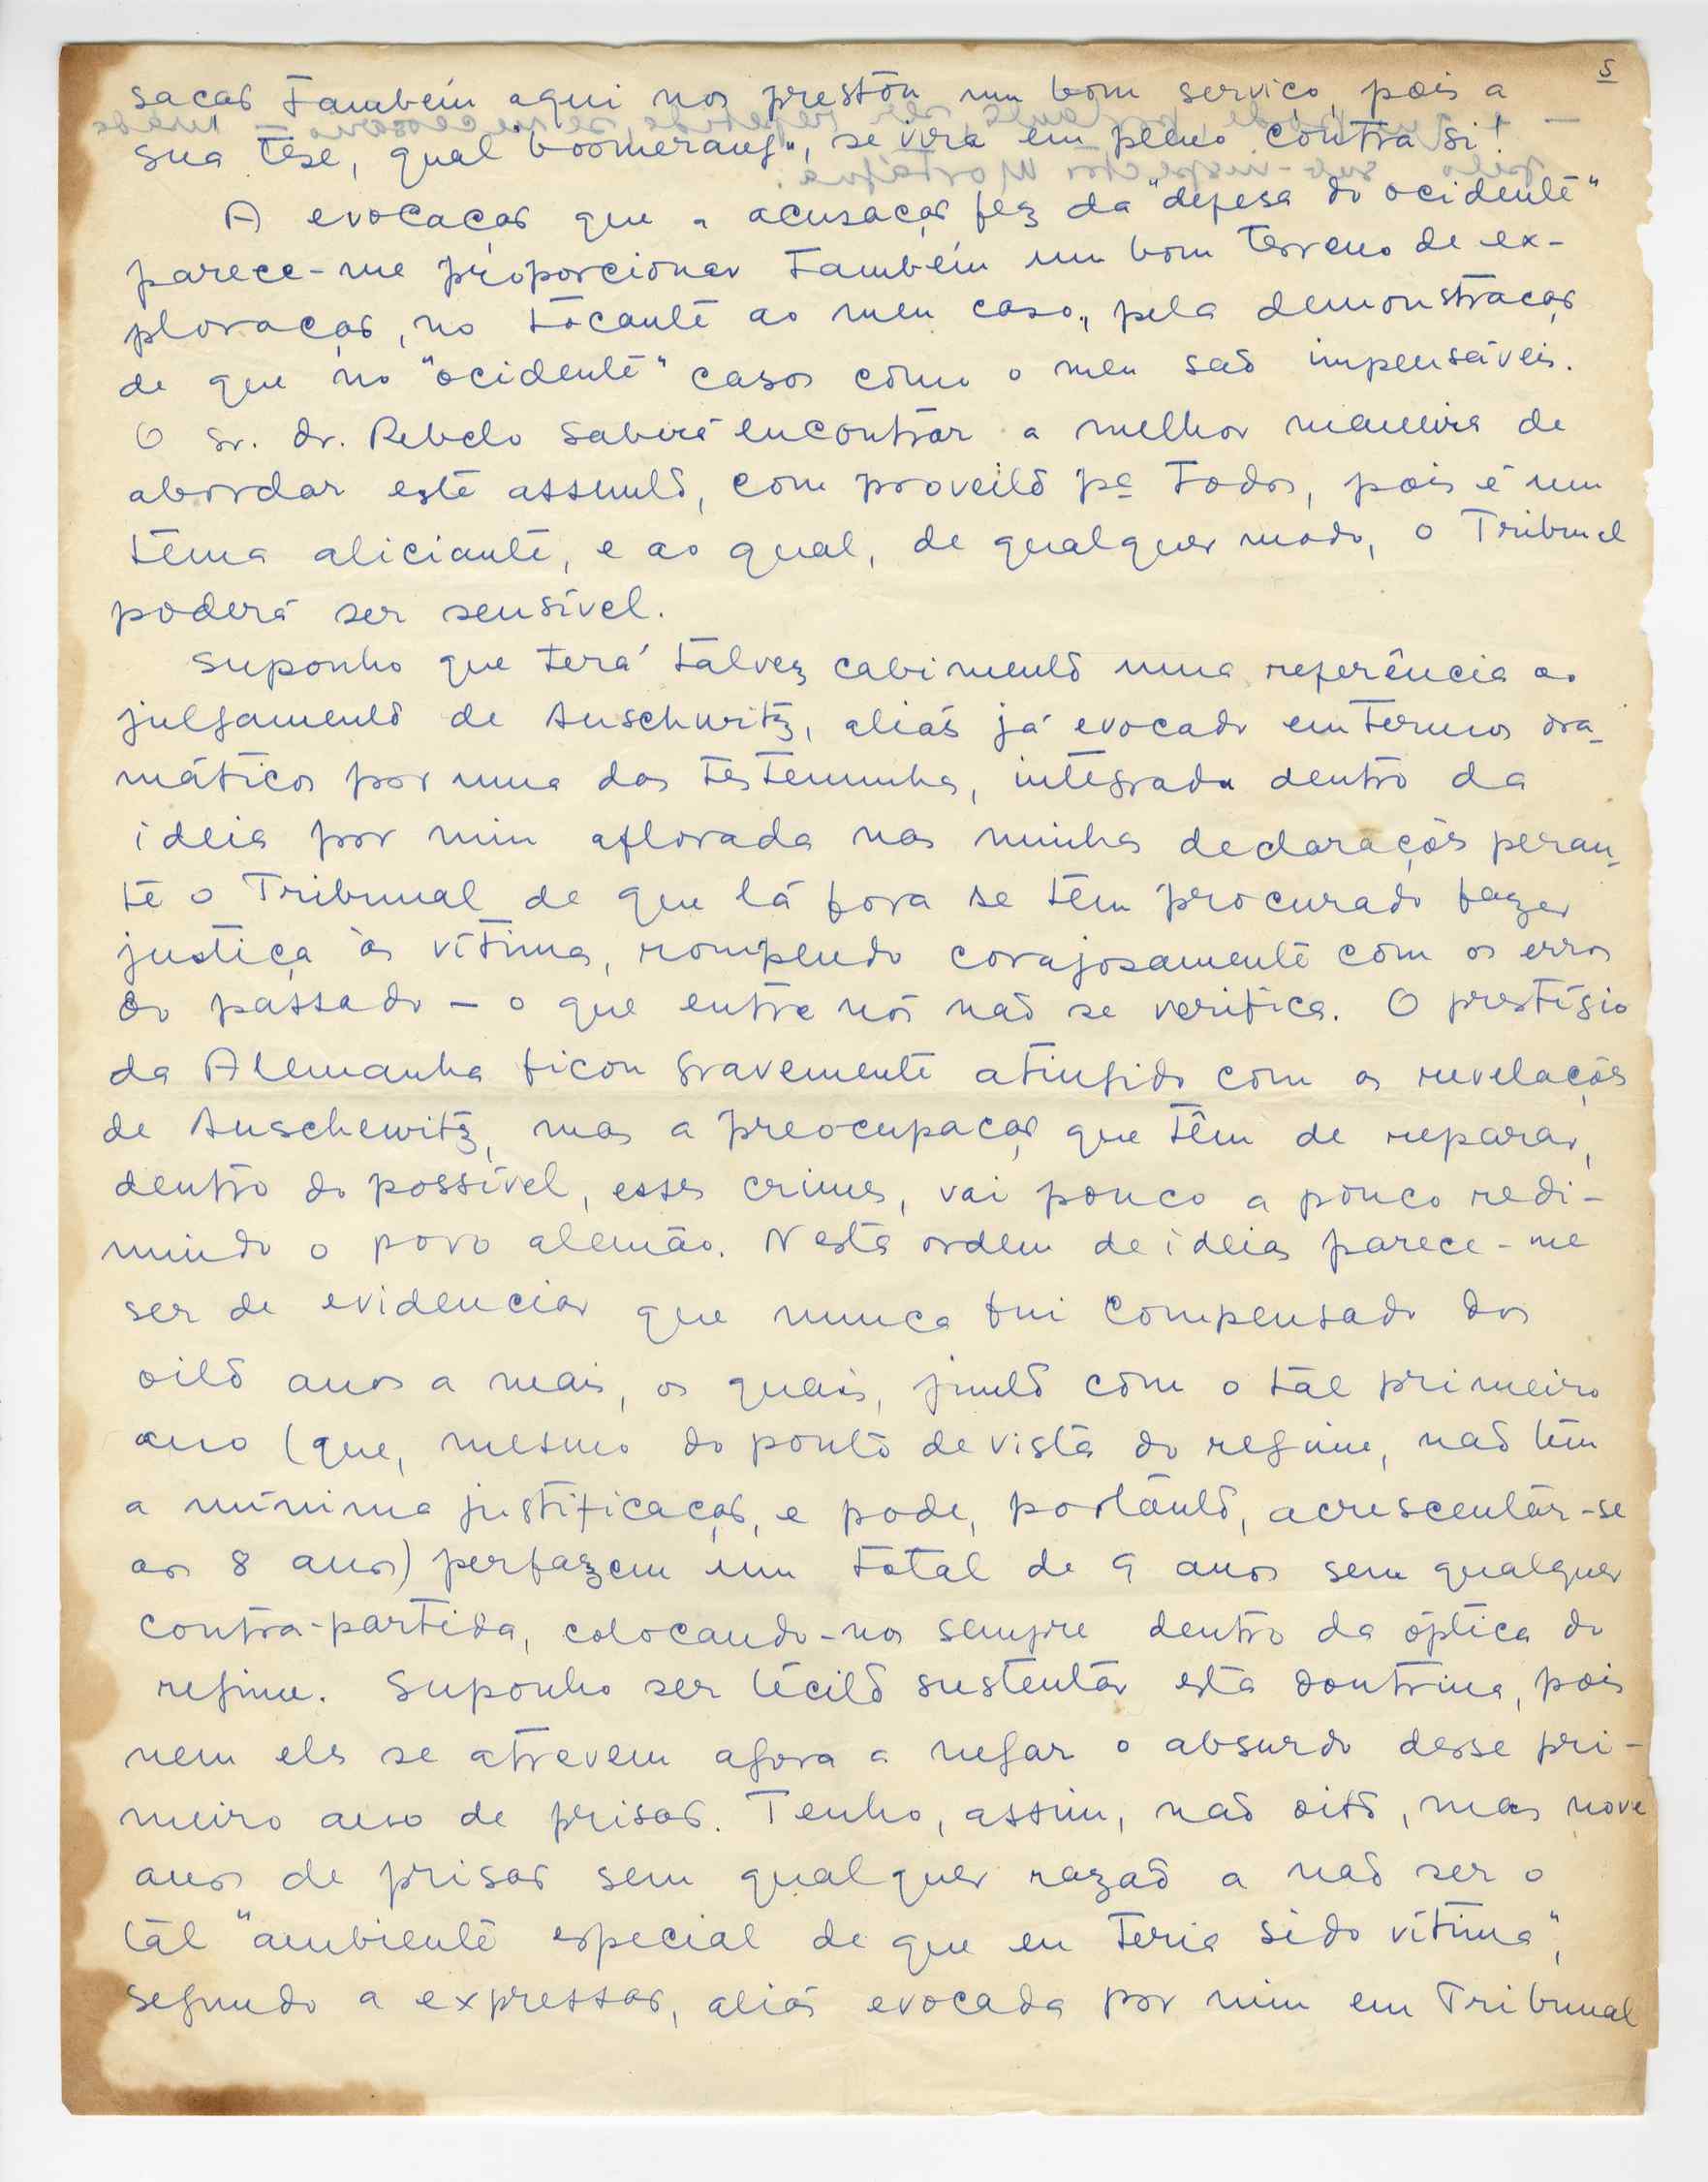 5
sação também aqui nos prestou um bom serviço, pois a
sua tese, qual "boomerang", se vira em pleno contra si!
A evocação que a acusação fez da "defesa do ocidente"
parece-me proporcionar também um bom terreno de ex-
ploração, no tocante ao meu caso, pela demonstração
de que no "ocidente" casos como o meu são impensáveis.
O sr. dr. Rebelo saberá encontrar a melhor maneira de
abordar este assunto, com proveito pª todos, pois é um
tema aliciante, e ao qual, de qualquer modo, o Tribunal
poderá ser sensível.
Suponho que terá talvez cabimento uma referência ao
julgamento de Auschwitz, aliás já evocado em termos dra-
máticos por uma das testemunhas, integrada dentro da
ideia por mim aflorada nas minhas declarações peran-
te o Tribunal de que lá fora se têm procurado fazer
justiça às vítimas, rompendo corajosamente com os erros
do passado – o que entre nós não se verifica. O prestígio
da Alemanha ficou gravemente atingido com as revelações
de Auschewitz, mas a preocupação que têm de reparar,
dentro do possível, esses crimes, vai pouco a pouco redi-
mindo o povo alemão. Nesta ordem de ideias parece-me
ser de evidenciar que nunca fui compensado dos
oito anos a mais, os quais, junto com o tal primeiro
ano (que, mesmo do ponto de vista do regime, não têm
a mínima justificação, e pode, portanto, acrescentar-se
aos 8 anos) perfazem um total de 9 anos sem qualquer
contra-partida, colocando-nos sempre dentro da óptica do
regime. Suponho ser lícito sustentar esta doutrina, pois
nem eles se atrevem agora a negar o absurdo desse pri-
meiro ano de prisão. Tenho, assim, não oito, mas nove
anos de prisão sem qualquer razão a não ser o
tal "ambiente especial de que eu teria sido vítima",
segundo a expressão, aliás evocada por mim em Tribunal